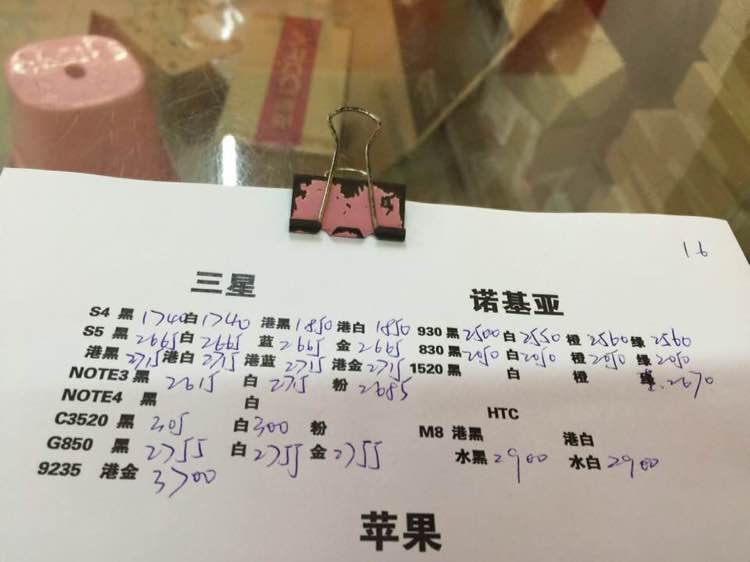 16
三星
S4 黑 1740 白 1740 港黑 1850 港白 1850
S5 黑 2665 白 2665 蓝 2665 金 2665
港黑 2715 港白 2715 港蓝 2715 港金 2715
NOTE3 黑 2615 白 2715 粉 2685
NOTE4 黑 白
C3520 黑 305 白 300 粉
G850 黑 2755 白 2755 金 2755
9235 港金 3700
诺基亚
930 黑 2500 白 2550 橙 2560 绿 2560
830 黑 2050 白 2050 橙 2050 绿 2050
1520 黑 白 橙 绿 2670
HTC
M8 港黑 港白
水黑 2900 水白 2900
苹果